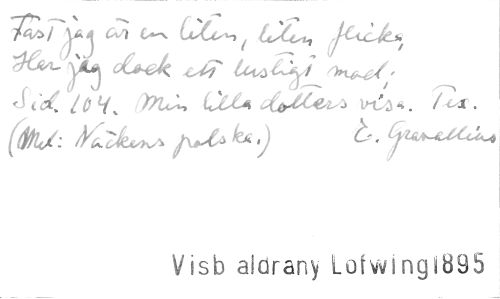 Fast jag är en liten, liten flicka,
Har jag dock ett lustigt mod;
Sid. 104. Min lilla dotters visa. Tex.
(Mel: Näckens polska.) E. Gravallius
Visb aldrany Lofwing1895